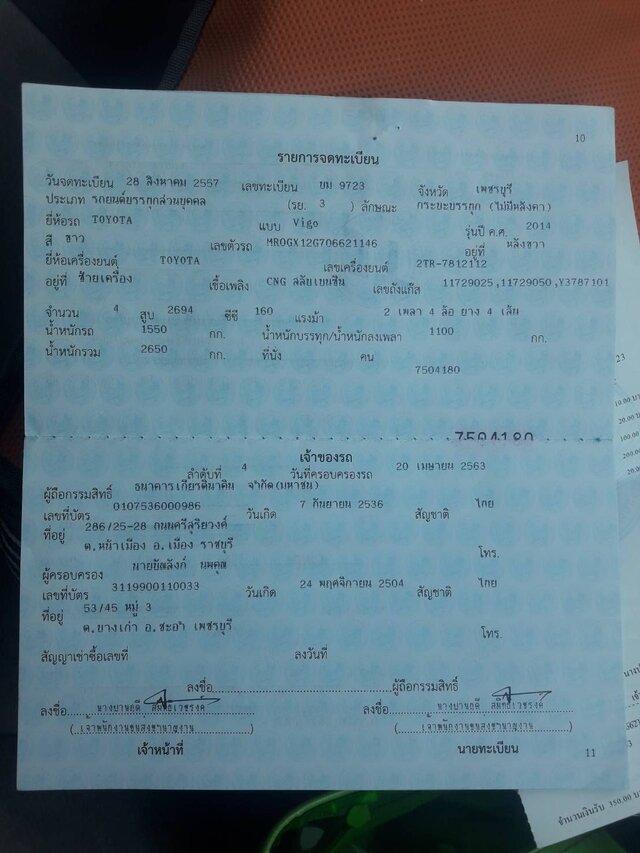 10
รายการจดทะเบียน
วันจดทะเบียน 28 สิงหาคม 2557 เลขทะเบียน ยม 9723 จังหวัด เพชรบุรี
ประเภท รถยนต์บรรทุกส่วนบุคคล (รย. 3 ) ลักษณะ กระบะบรรทุก (ไม่มีหลังคา)
ยี่ห้อรถ TOYOTA แบบ Vigo รุ่นปี ค.ศ. 2014
สี ขาว เลขตัวรถ MROGX12G706621146 อยู่ที่ หลังขวา
ยี่ห้อเครื่องยนต์ TOYOTA เลขเครื่องยนต์ 2TR-7812112
อยู่ที่ ซ้ายเครื่อง เชื้อเพลิง CNG สลับเบนซิน เลขถังแก๊ส 11729025,11729050,Y3787101
จำนวน 4 สูบ 2694 ซีซี 160 แรงม้า 2 เพลา 4 ล้อ ยาง 4 เส้น
น้ำหนักรถ 1550 กก. น้ำหนักบรรทุก/น้ำหนักลงเพลา 1100 กก.
น้ำหนักรวม 2650 กก. ที่นั่ง คน
7504180
7504180
เจ้าของรถ
ลำดับที่ 4 วันที่ครอบครองรถ 20 เมษายน 2563
ผู้ถือกรรมสิทธิ์ ธนาคารเกียรตินาคิน จำกัด(มหาชน)
เลขที่บัตร 0107536000986 วันเกิด 7 กันยายน 2536 สัญชาติ ไทย
ที่อยู่ 286/25-28 ถนนศรีสุริยวงศ์
ต.หน้าเมือง อ.เมือง ราชบุรี
โทร.
ผู้ครอบครอง นาย
เลขที่บัตร 3119900110033 วันเกิด 24 พฤศจิกายน 2504 สัญชาติ ไทย
ที่อยู่ 53/45 หมู่ 3
ต.บางเก่า อ.ชะอำ เพชรบุรี
โทร.
สัญญาเช่าซื้อเลขที่ ลงวันที่
ลงชื่อ ผู้ถือกรรมสิทธิ์
ลงชื่อ ลงชื่อ
(เจ้าพนักงานขนส่งชำนาญงาน) (เจ้าพนักงานขนส่งชำนาญงาน)
เจ้าหน้าที่ นายทะเบียน
11
จำนวนเงินรับ 350.00